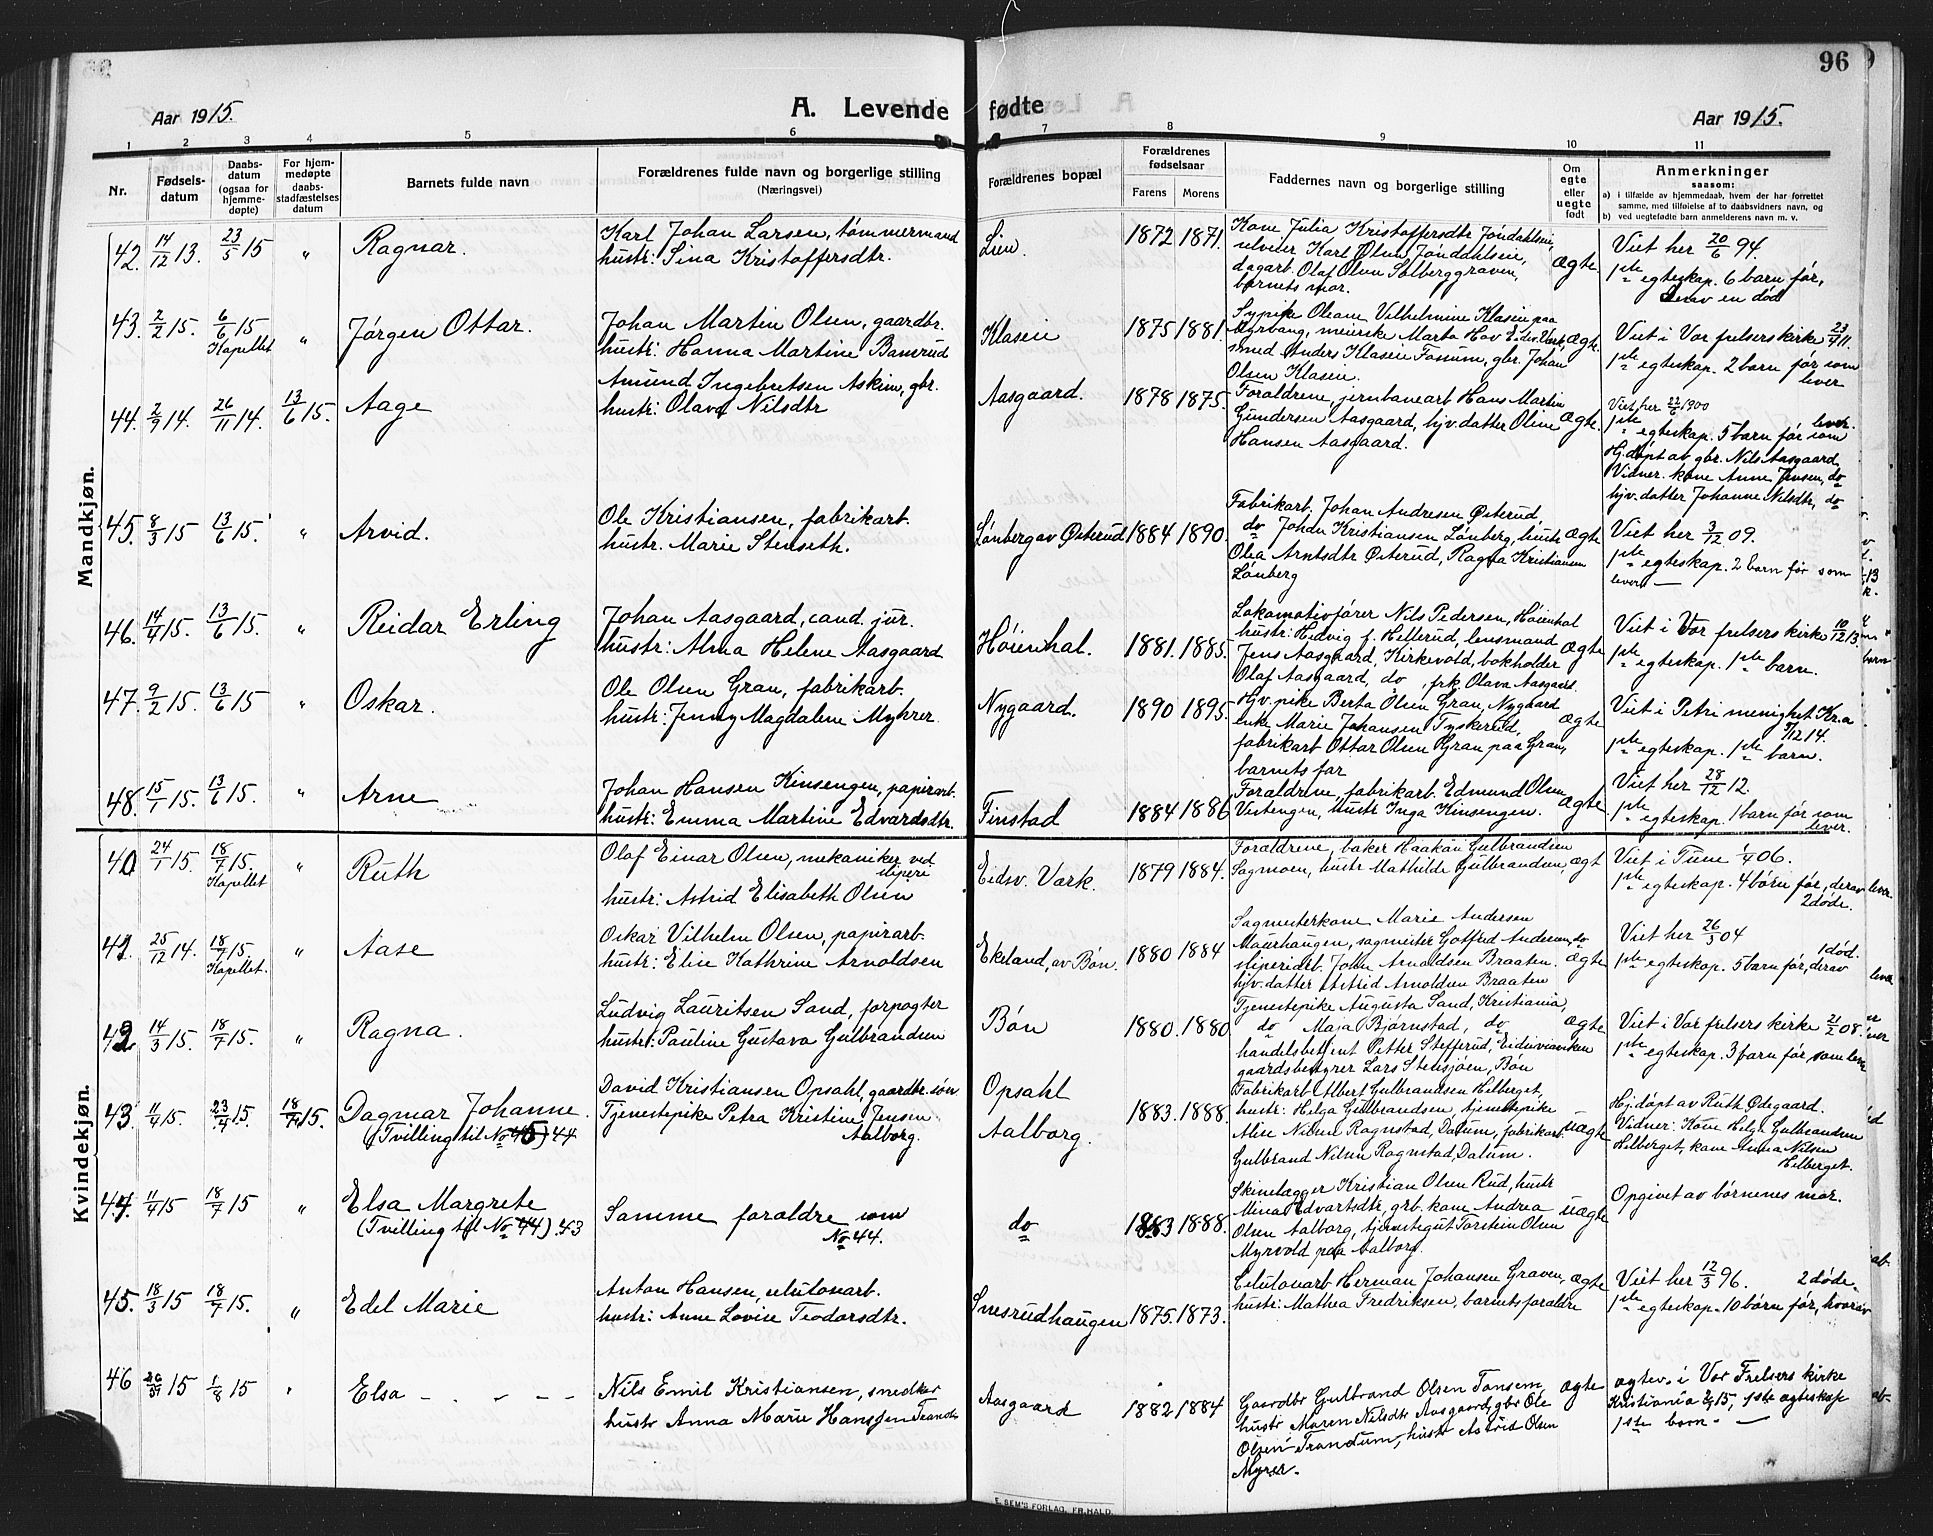 96
Aar 1915.
A. Levende fødte
Aar 1915.
1 2 3 4 5 6 7 8 9 10 11
Nr.
Fødsels-
datum
Daabs-
datum
(ogsaa for
hjemme-
døpte)
For hjem-
medøpte
daabs-
stadfæstelses
datum
Barnets fulde navn
Forældrenes fulde navn og borgerlige stilling
(Næringsvei)
Forældrenes bopæl
Forældrenes
fødselsaar
Farens Morens
Faddernes navn og borgerlige stilling
Om
egte
eller
uegte
født
Anmerkninger
saasom:
a) i tilfælde av hjemmedaab, hvem der har forrettet
samme, med tilføielse af to daabsvidners navn, og
b) ved uegtefødte barn anmelderens navn m. v.
Mandkjøn.
42. 14/12 13. 23/5 15 " Ragnar.
Karl Johan Larsen, tømmermand
hustr: Sina Kristoffersdtr.
Lien. 1872 1871.
Kone Julia Kristoffersdtr Jonddahlseie,
Karl Olsen Jonddahlseie,
dagarb. Olaf Olsen Solberggraven,
barnets mor.
Ægte.
Viet her 20/6 94.
1ste egteskap. 6 barn før,
derav en død
43. 2/2 15. 6/6 15 Kapellet " Jørgen Ottar.
Johan Martin Olsen, gaardbr.
hustr: Hanna Martine Bamrud
Klaseie 1875 1881.
Sypike Oleane Vilhelmine Klaseie paa
Myrvang, meierske Marta Hov Eidsv. Værk,
smed Anders Klaseie Fossum, gbr. Johan
Olsen Klaseie.
Ægte.
Viet i Vor frelsers kirke 23/7 11.
1ste egteskap. 2 barn før som
lever
44. 2/9 14. 26/11 14. 13/6 15. Aage
Amund Ingebretsen Askim, gbr.
hustr: Olava Nilsdtr
Aasgaard. 1878 1875.
Foraldrene, jernbanearb Hans Martin
Gundersen Aasgaard, hjv. datter Oline
Hansen Aasgaard.
Ægte.
Viet her 22/6 1900
1ste egteskap. 5 barn før som lever.
Hj.døpt av gbr. Nils Aasgaard,
Vidner. kone Anne Jensen, do
hjv. datter Johanne Nilsdtr, do
45. 8/3 15 13/6 15. " Arvid.
Ole Kristiansen, fabrikarb.
hustr. Marie Stenseth.
Lønberg av Østerud 1884 1890.
Fabrikarb. Johan Andresen Østerud
do Johan Kristiansen Lønberg, hustr
Olea Arntsdtr Østerud, Ragna Kristiansen
Lønberg
Ægte
Viet her 3/12 09.
1ste egteskap. 2 barn før som
lever
46. 14/4 15. 13/6 15. " Reidar Erling
Johan Aasgaard, cand. jur.
hustr: Alma Helene Aasgaard
Høienhal. 1881. 1885.
Lokomotivfører Nils Pedersen, Høienhal
hustr: Hedvig f. Hellerud, lensmand
Jens Aasgaard, Kirkevold, bokholder
Olaf Aasgaard, do, frk. Olava Aasgaard.
Ægte
Viet i Vor frelsers kirke 10/12 13.
1ste egteskap. 1ste barn.
47. 9/2 15. 13/6 15 " Oskar.
Ole Olsen Gran, fabrikarb.
hustr: Jenny Magdalene Myhrer.
Nygaard. 1890 1895.
Hjv. pike Berta Olsen Gran, Nygaard
enke Marie Johansen Tyskerud,
fabrikarb Ottar Olsen Gran paa Gran,
barnets far
Ægte
Viet i Petri menighet Kr.a
7/12 14.
1ste egteskap. 1ste barn.
48. 15/1 15. 13/6 15. " Arne
Johan Hansen Kinsengen, papirarb.
hustr: Emma Martine Edvardsdtr.
Finstad 1884 1886
Foraldrene, fabrikarb. Edmund Olsen
Vestengen, hustr Inga Kinsengen.
Ægte
Viet her 28/12 12.
1ste egteskap. 1 barn før som
lever.
Kvindekjøn.
40 24/1 15. 18/7 15. Kapellet " Ruth
Olaf Einar Olsen, mekaniker ved
sliperi
hustr: Astrid Elisabeth Olsen
Eidsv. Værk. 1879 1884.
Foraldrene, baker Haakan Gulbrandsen
Sagmoen, hustr Mathilde Gulbrandsen,
Ægt
Viet i Tune 1/4 06.
1ste egteskap. 4 børn før, derav
2 døde.
41. 25/12 14. 18/7 15. Kapellet. " Aase
Oskar Vilhelm Olsen, papirarb.
hustr: Elise Kathrine Arnoldsen
Ekeland, av Bøn. 1880 1884
Sagmesterkone Marie Andersen
Maurhaugen, sagmester Gotfred Andersen, do
sliperiarb. John Arnoldsen Braaten.
hjv. datter Astrid Arnoldsen Braaten
Ægte
Viet her 26/5 04
1ste egteskap. 5 barn før, derav 1 død.
42. 14/3 15. 18/7 15. " Ragna.
Ludvig Lauritsen Sand, forpagter
hustr: Pauline Gustava Gulbrandsen
Bøn 1880. 1880
Tjenestepike Augusta Sand, Kristiania,
do Maja Bjørnstad, do
handelsbetjent Petter Stefferud, Eidsiviansken
gaardsbestyrer Lars Stensjøen, Bøn
Ægte
Viet i Vor frelsers kirke 21/2 08.
1ste egteskap. 3 barn før, som lever
43. 11/4 15. 23/4 15. 18/7 15. Dagmar Johanne.
(Tvilling til No 45) 44
David Kristiansen Opsahl, gaardbr. søn
Tjenestepike Petra Kristine Jensen
Aalborg.
Opsahl
Aalborg. 1883. 1888.
Fabrikarb Albert Gulbrandsen Helberget,
hustr: Helga Gulbrandsen, tjenestepike
Aline Nilsen Ragnstad, Dalum, fabrikarb
Gulbrand Nilsen Ragnstad, Dalum.
uægte
Hj.døpt av Ruth Ødegaard.
Vidner: Kone Helga Gulbrandsen
Helberget, kone Anna Nilsen
Helberget.
44. 11/4 15 18/7 15 " Elsa Margrete
(Tvilling til No 44). 43
Samme foraldre som
No 44.
do 1883 1888.
Skinelægger Kristian Olsen Rud, hustr
Mina Edvartsdtr, grb. kone Andrea
Olsen Aalborg, tjenestegut Torstein Olsen
Myrvold paa Aalborg.
uægte
Opgivet av børnenes mor.
45. 18/3 15 18/7 15. " Edel Marie
Anton Hansen, celulosearb.
hustr: Anne Lovise Teodorsdtr.
Snesrudhaugen 1875. 1873.
Celulosearb Herman Johansen Graven,
hustr: Mathea Fredriksen, barnets foraldre
Ægte
Viet her 12/3 96. 2 døde.
1ste egteskap. 10 børn før, hvorav
46 15 1/8 15 " Elsa
Nils Emil Kristiansen, smedker
hustr Anna Marie Hanssen Trandu
Aasgaard 1882 1884
Gaardbr Gulbrand Olsen Tonsem,
hustr Maren Nilsdtr Aasgaard, gbr Ole
Olsen Trandum, hustr Astrid Olsen
Myrer.
Ægte
ægtev. i Vor Frelsers kirke
Kristiania 15, 1ste ægteskap
1ste barn.
E. SEM'S FORLAG, FR.HALD.